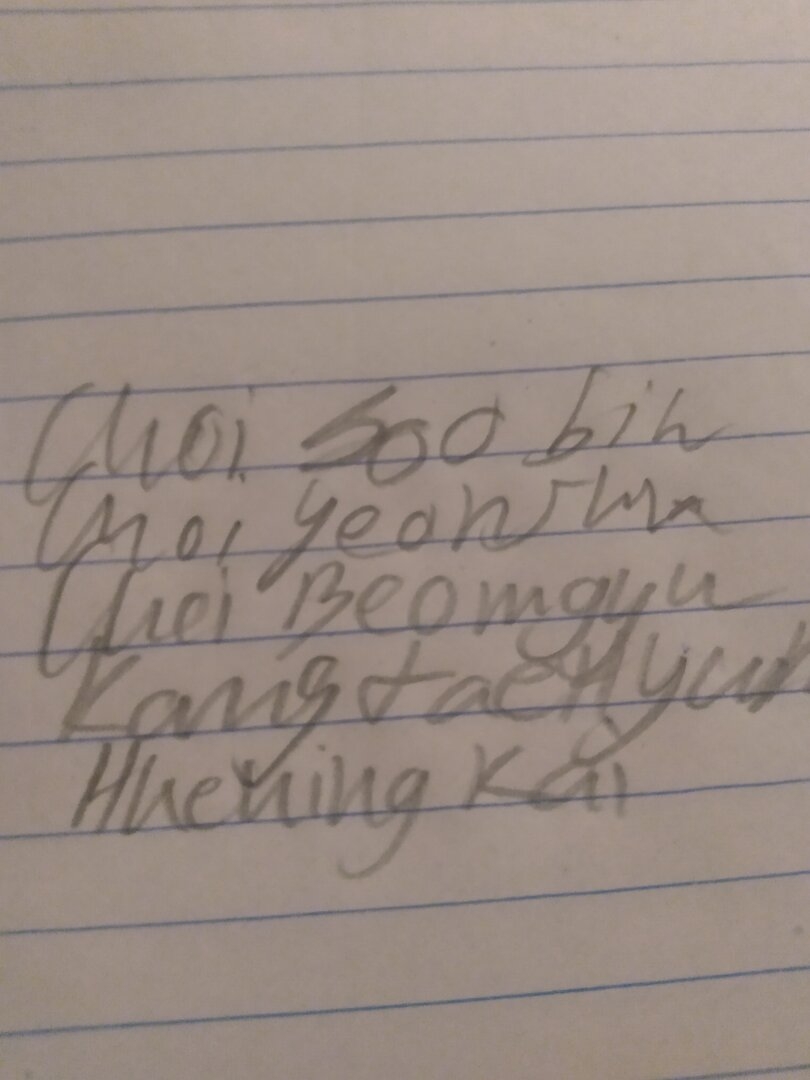 Choi Soo bin
Choi Yeonjun
Choi Beomgyu
Kang taeHyun
Huening Kai